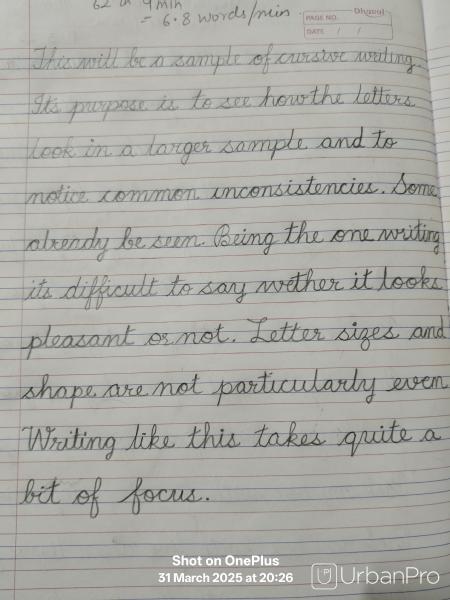 62 in 9 min
= 6.8 words/min
PAGE NO.
Dhaval
DATE / /
This will be a sample of cursive writing.
It's purpose is to see how the letters
look in a larger sample and to
notice common inconsistencies. Some
already be seen. Being the one writing
its difficult to say wether it looks
pleasant or not. Letter sizes and
shape are not particularly even
Writing like this takes quite a
bit of focus.
Shot on OnePlus
31 March 2025 at 20:26
UrbanPro